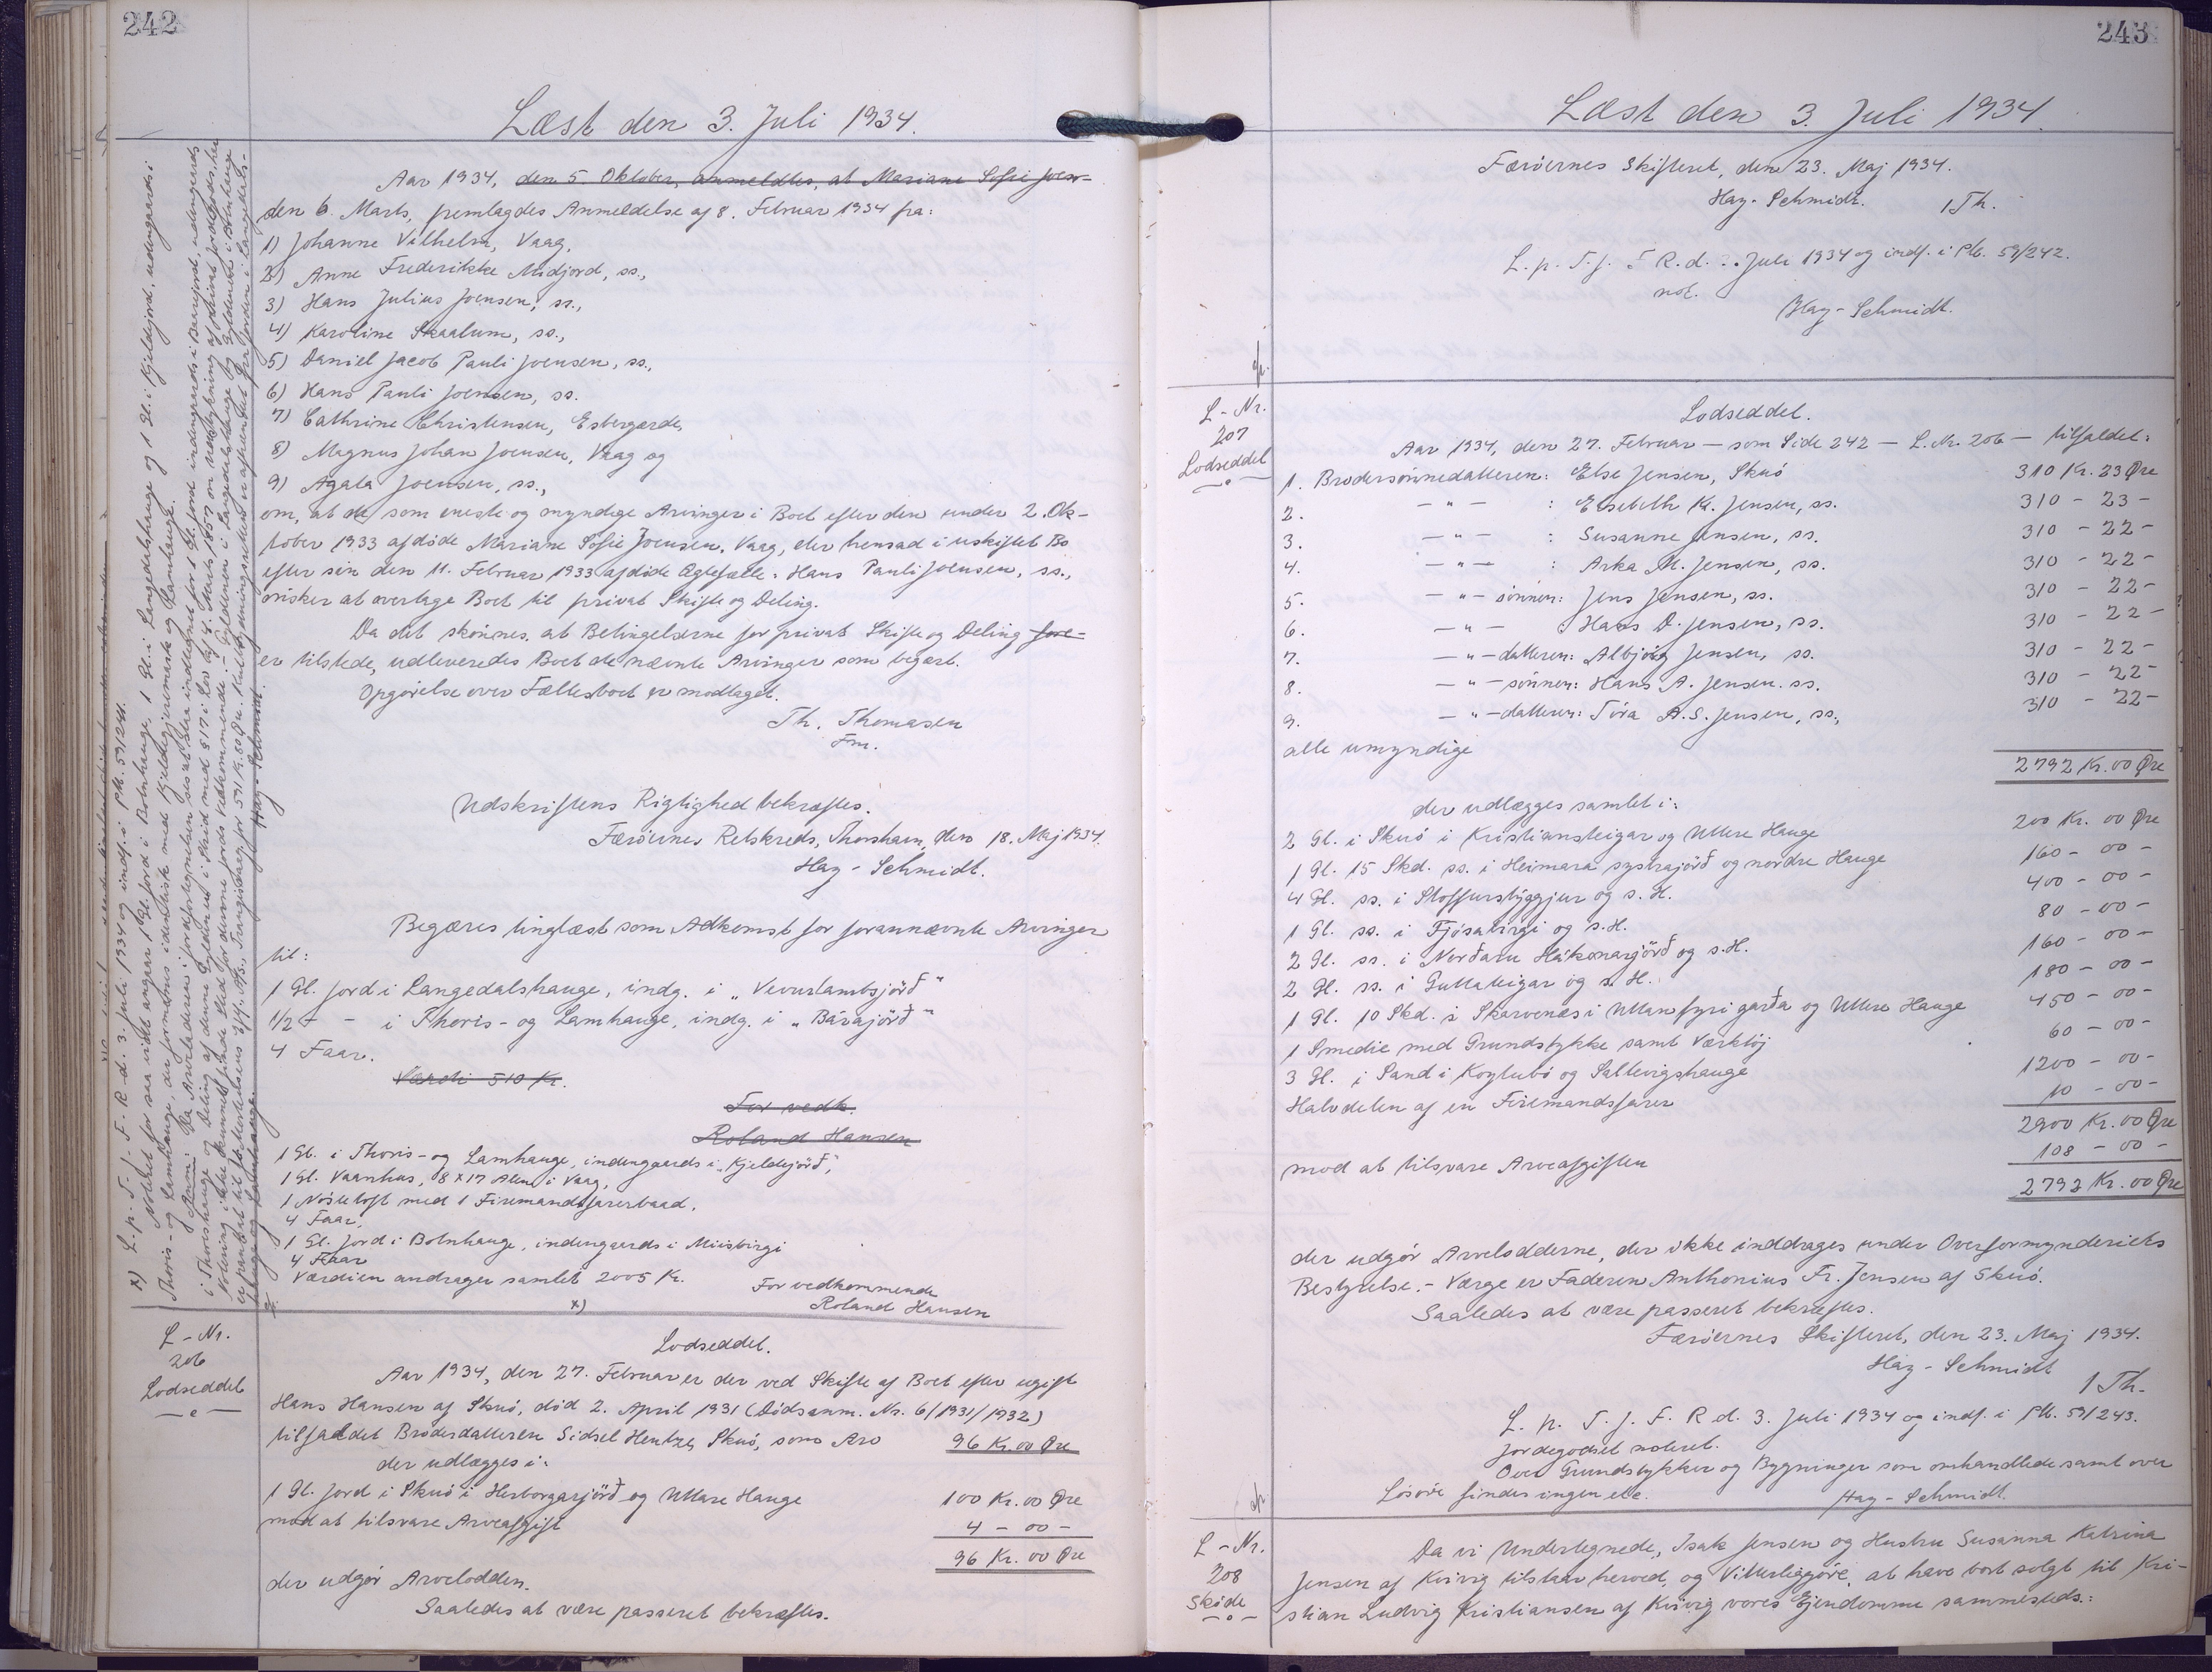 242
Læst den 3. Juli 1934.
Aar 1934, den 5. Oktober, anmeldtes, at Mariane Sofie Joen-
den 6. Marts, fremlagdes Anmeldelse af 8. Februar 1934 fra:
1) Johanne Vilhelm, Vaag,
2) Anne Frederikke Midjord, ss.,
3) Hans Julius Joensen, ss.,
4) Karoline Skaalum, ss.,
5) Daniel Jacob Pauli Joensen, ss.,
6) Hans Pauli Joensen, ss.
7) Cathrine Christensen, Esbergærde,
8) Magnus Johan Joensen, Vaag og
9) Agata Joensen, ss.,
om, at de som eneste og myndige Arvinger i Boet efter den under 2. Ok-
tober 1933 afdøde Mariane Sofie Joensen, Vaag, der hensad i uskiftet Bo
efter sin den 11. Februar 1933 afdøde Ægtefælle: Hans Pauli Joensen, ss.,
ønsker at overtage Boet til privat Skifte og Deling.
Da det skønnes, at Betingelserne for privat Skifte og Deling fore-
er tilstede, udleveredes Boet de nævnte Arvinger som begært.
Opgørelse over Fællesboet er modtaget.
Th. Thomasen
Fm.
Udskriftens Rigtighed bekræftes.
Færøernes Retskreds, Thorshavn, den 18. Maj 1934.
Hay-Schmidt.
Begæres tinglæst som Adkomst for forannævnte Arvinger
til:
1 Gl. Jord i Langedalshauge, indg. i "Vevurlambsjørð"
1/2 - - i Thoris- og Lamhauge, indg. i "Bárajørð"
4 Faar.
Værdi 510 Kr.
For vedk.
Roland Hansen
1 Gl. i Thoris- og Lamhauge, indengaards i "Kjeldejørð",
1 Gl. Vaanhus, 8 x 17 Alen i Vaag,
1 Nøstetoft med 1 Firemandsfarerbaad,
4 Faar,
1 Gl. Jord i Botnhauge, indengaards i Miisbirgi
4 Faar
Værdien andrager samlet 2005 Kr.
For vedkommende
x)
Roland Hansen
x) L. p. T. f. F. R. d. 3. Juli 1934 og indf. i Ptb. 59/241.
Noteret for saa vidt angaar 1 Gl. Jord i Botnhauge, 1 Gl. i Langedalshauge og 1 Gl. i Kjeldejord, udengaards i
Thoris- og Lamhauge, der formenes identisk med Kjeldegjerimerk og Lamhauge.
Hay-Schmidt.
L-Nr.
206
Lodseddel
Lodseddel.
Aar 1934, den 27. Februar er der ved Skifte af Boet efter ugift
Hans Hansen af Skuø, død 2. April 1931 (Dødsanm. Nr. 6/1931/1932)
tilfaldet Broderdatteren Sidsel Hentze, Skuø, som Arv 96 Kr. 00 Øre
der udlægges i:
1 Gl. Jord i Skuø i Herborgarjørð og Uttare Hauge 100 Kr. 00 Øre
mod at tilsvare Arveafgift 4 - 00 -
96 Kr. 00 Øre
der udgør Arvelodden.
Saaledes at være passeret bekræftes.
243
Læst den 3. Juli 1934.
Færøernes Skifteret, den 23. Maj 1934.
Hay-Schmidt. 1 Th.
L. p. T. f. F. R. d. Juli 1934 og indf. i Ptb. 59/242.
not.
Hay-Schmidt.
L-Nr.
207
Lodseddel
Lodseddel.
Aar 1934, den 27. Februar — som Side 242 — L. Nr. 206 — tilfaldet:
1. Brodersønnedatteren: Else Jensen, Skuø 310 Kr. 23 Øre
2. - " - : Elsebeth K. Jensen, ss. 310 - 23 -
3. - " - : Susanne Jensen, ss. 310 - 22 -
4. - " - : Arka M. Jensen, ss. 310 - 22 -
5. - " - sønnen: Jens Jensen, ss. 310 - 22 -
6. - " - : Hans D. Jensen, ss. 310 - 22 -
7. - " - datteren: Albjørg Jensen, ss. 310 - 22 -
8. - " - sønnen: Hans A. Jensen. ss. 310 - 22 -
9. - " - datteren: Tóra A. S. Jensen, ss., 310 - 22 -
alle umyndige
2792 Kr. 00 Øre
der udlægges samlet i:
2 Gl. i Skuø i Kristiansteigar og Uttere Hauge 200 Kr. 00 Øre
1 Gl. 15 Skd. ss. i Heimara systrajörð og nordre Hauge 160 - 00 -
4 Gl. ss. i Stoffurstyggjur og s. H. 400 - 00 -
1 Gl. ss. i Fjósabirgi og s. H. 80 - 00 -
2 Gl. ss. i Norðaru Hákonarjörð og s. H. 160 - 00 -
2 Gl. ss. i Guttateigar og s. H. 180 - 00 -
1 Gl. 10 Skd. i Skarvenæs i Uttanfyri garða og Uttere Hauge 450 - 00 -
1 Smedie med Grundstykke samt Værktøj 60 - 00 -
3 Gl. i Sand i Koytubø og Saltevigshauge 1200 - 00 -
Halvdelen af en Firemandsfarer 10 - 00 -
2900 Kr. 00 Øre
mod at tilsvare Arveafgiften 108 - 00 -
2792 Kr. 00 Øre
der udgør Arvelodderne, der ikke inddrages under Overformynderiets
Bestyrelse. - Værge er Faderen Anthonius Fr. Jensen af Skuø.
Saaledes at være passeret bekræftes.
Færøernes Skifteret, den 23. Maj 1934.
Hay-Schmidt
1 Th.
L. p. T. f. F. R. d. 3. Juli 1934 og indf. i Ptb. 59/243.
Jordegodset noteret.
Over Grundstykker og Bygninger som omhandlede samt over
Løsøre findes ingen
Hay-Schmidt.
L-Nr.
208
Skøde
Da vi Undertegnede, Isak Jensen og Hustru Susanna Katrina
Jensen af Kvivig tilstaar herved, og Vitterliggøre, at have bort solgt til Kri-
stian Ludvig Kristiansen af Kvivig vores Ejendomme sammesteds: